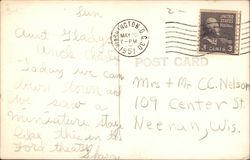 Sun.
Aunt Gladys
Uncle
Today we came
down town and
we saw a
miniature stage
like this in the
Ford theatre
WASHINGTON, D.C.
MAY
1 - PM
1951
UNITED STATES POSTAGE
3 CENTS 3
POST CARD
Mrs + Mr C.C. Nelson
109 Center St.
Neenah, Wis.